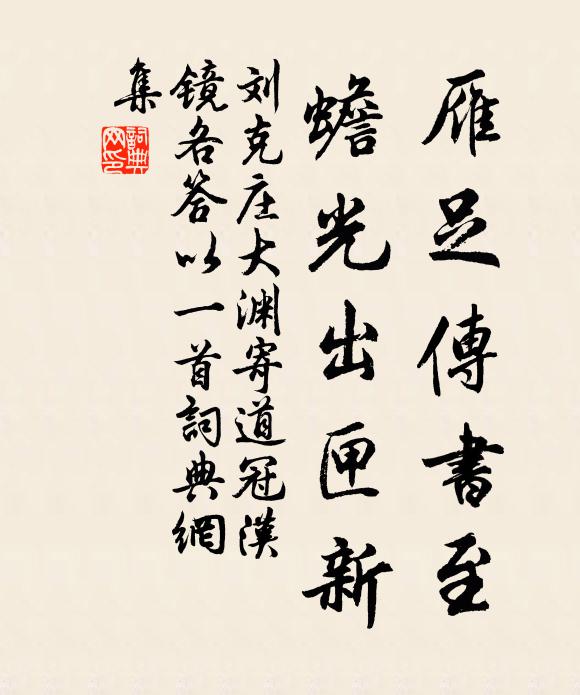 雁足傳書至
蟾光出匣新
刘克庄大渊寄道冠漢
镜各答以一首詞典網
集
詞典網印